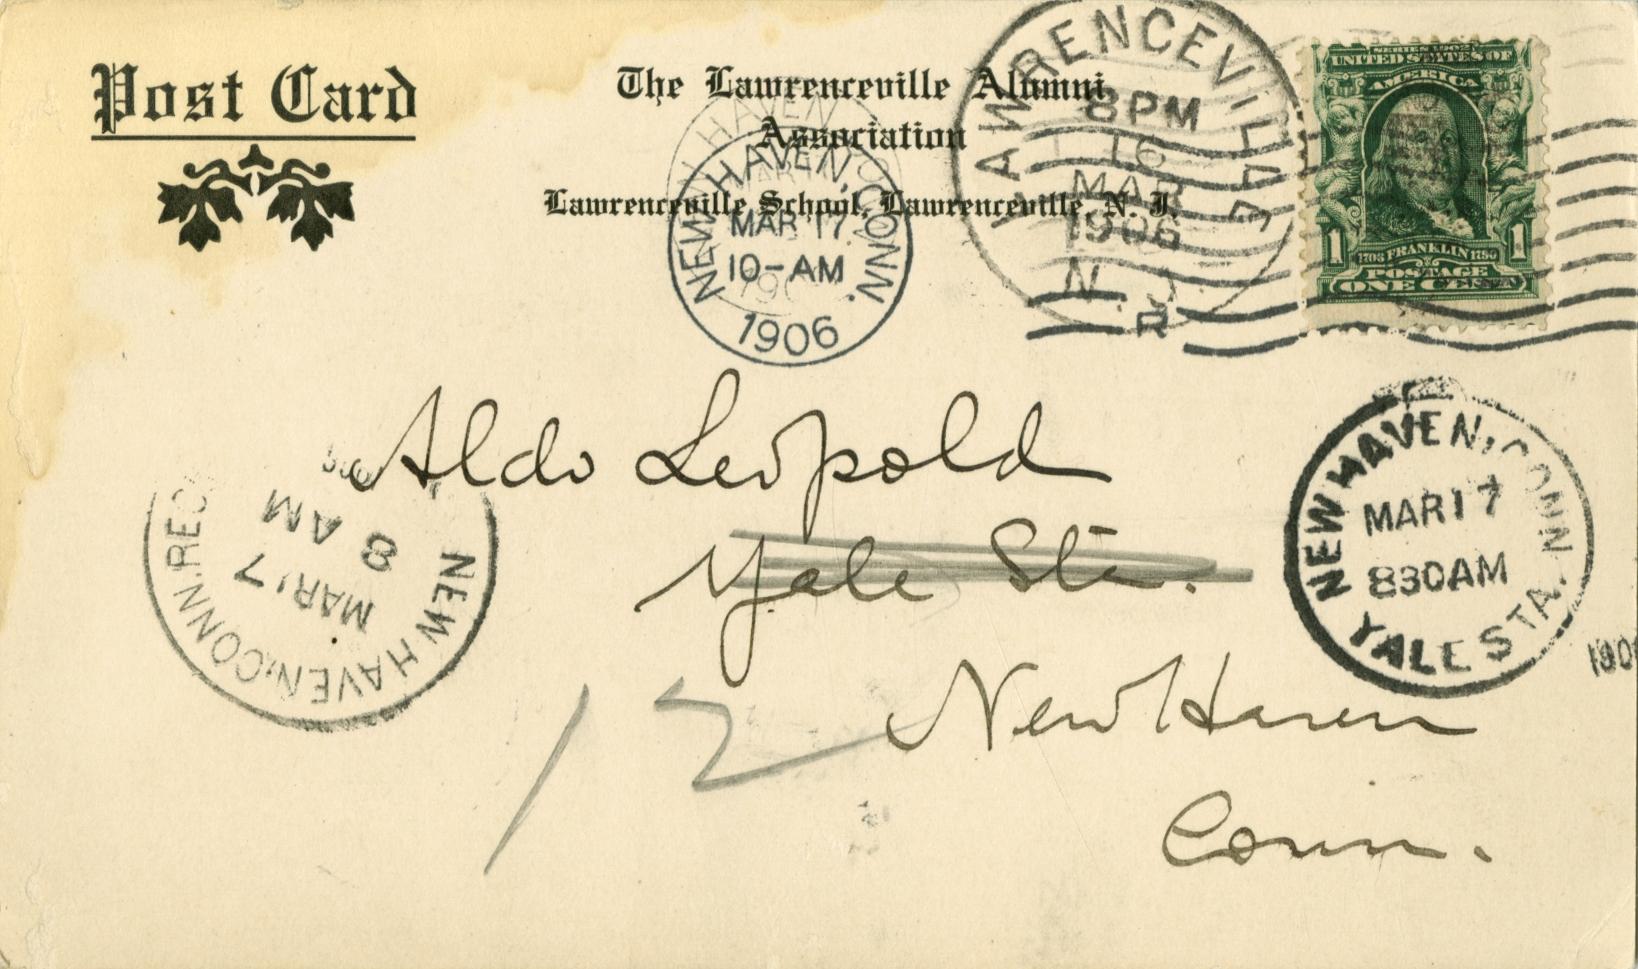 Post Card
The Lawrenceville Alumni
Association
Lawrenceville School, Lawrenceville, N. J.
LAWRENCEVILLE
8 PM
16
MAR
1906
N. J.
R
SERIES 1902
UNITED STATES OF
AMERICA
1 1706 FRANKLIN 1790 1
POSTAGE
ONE CENT
NEW HAVEN, CONN.
MAR 17
10-AM
1906
Aldo Leopold
Yale Sta.
New Haven
Conn.
12
NEW HAVEN, CONN. REC'
MAR 17
8 AM
NEW HAVEN, CONN.
MAR 17
830AM
YALE STA.